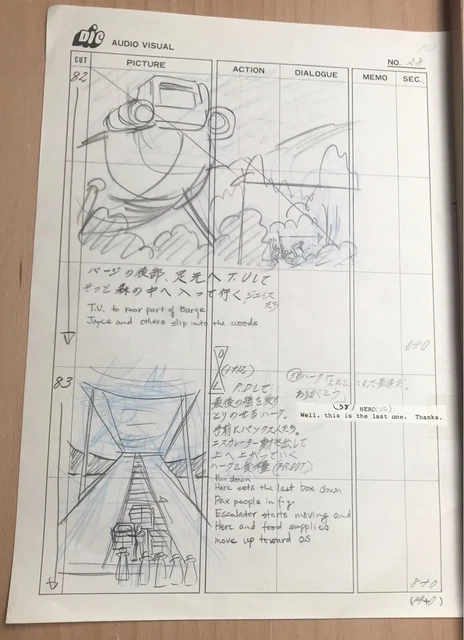 DIC AUDIO VISUAL
NO. 28
CUT PICTURE ACTION DIALOGUE MEMO SEC.
82
バージの後部、足元へT.Uして
そっと森の中へ入って行くジェイス
たち
T.U. to rear part of Barge
Jayce and others slip into the woods
6+0
83
P.Dして
最後の箱を
とりのせるハーク。
手前にパックス人たち。
エスカレーター動き出して
上へ上がっていく
ハークと食糧
58 HERC(V2)
Well, this is the last one. Thanks.
Pan down
Herc sets the last box down
Pax people in f.g.
Escalator starts moving and
Herc and food supplies
move up toward OS.
8+0